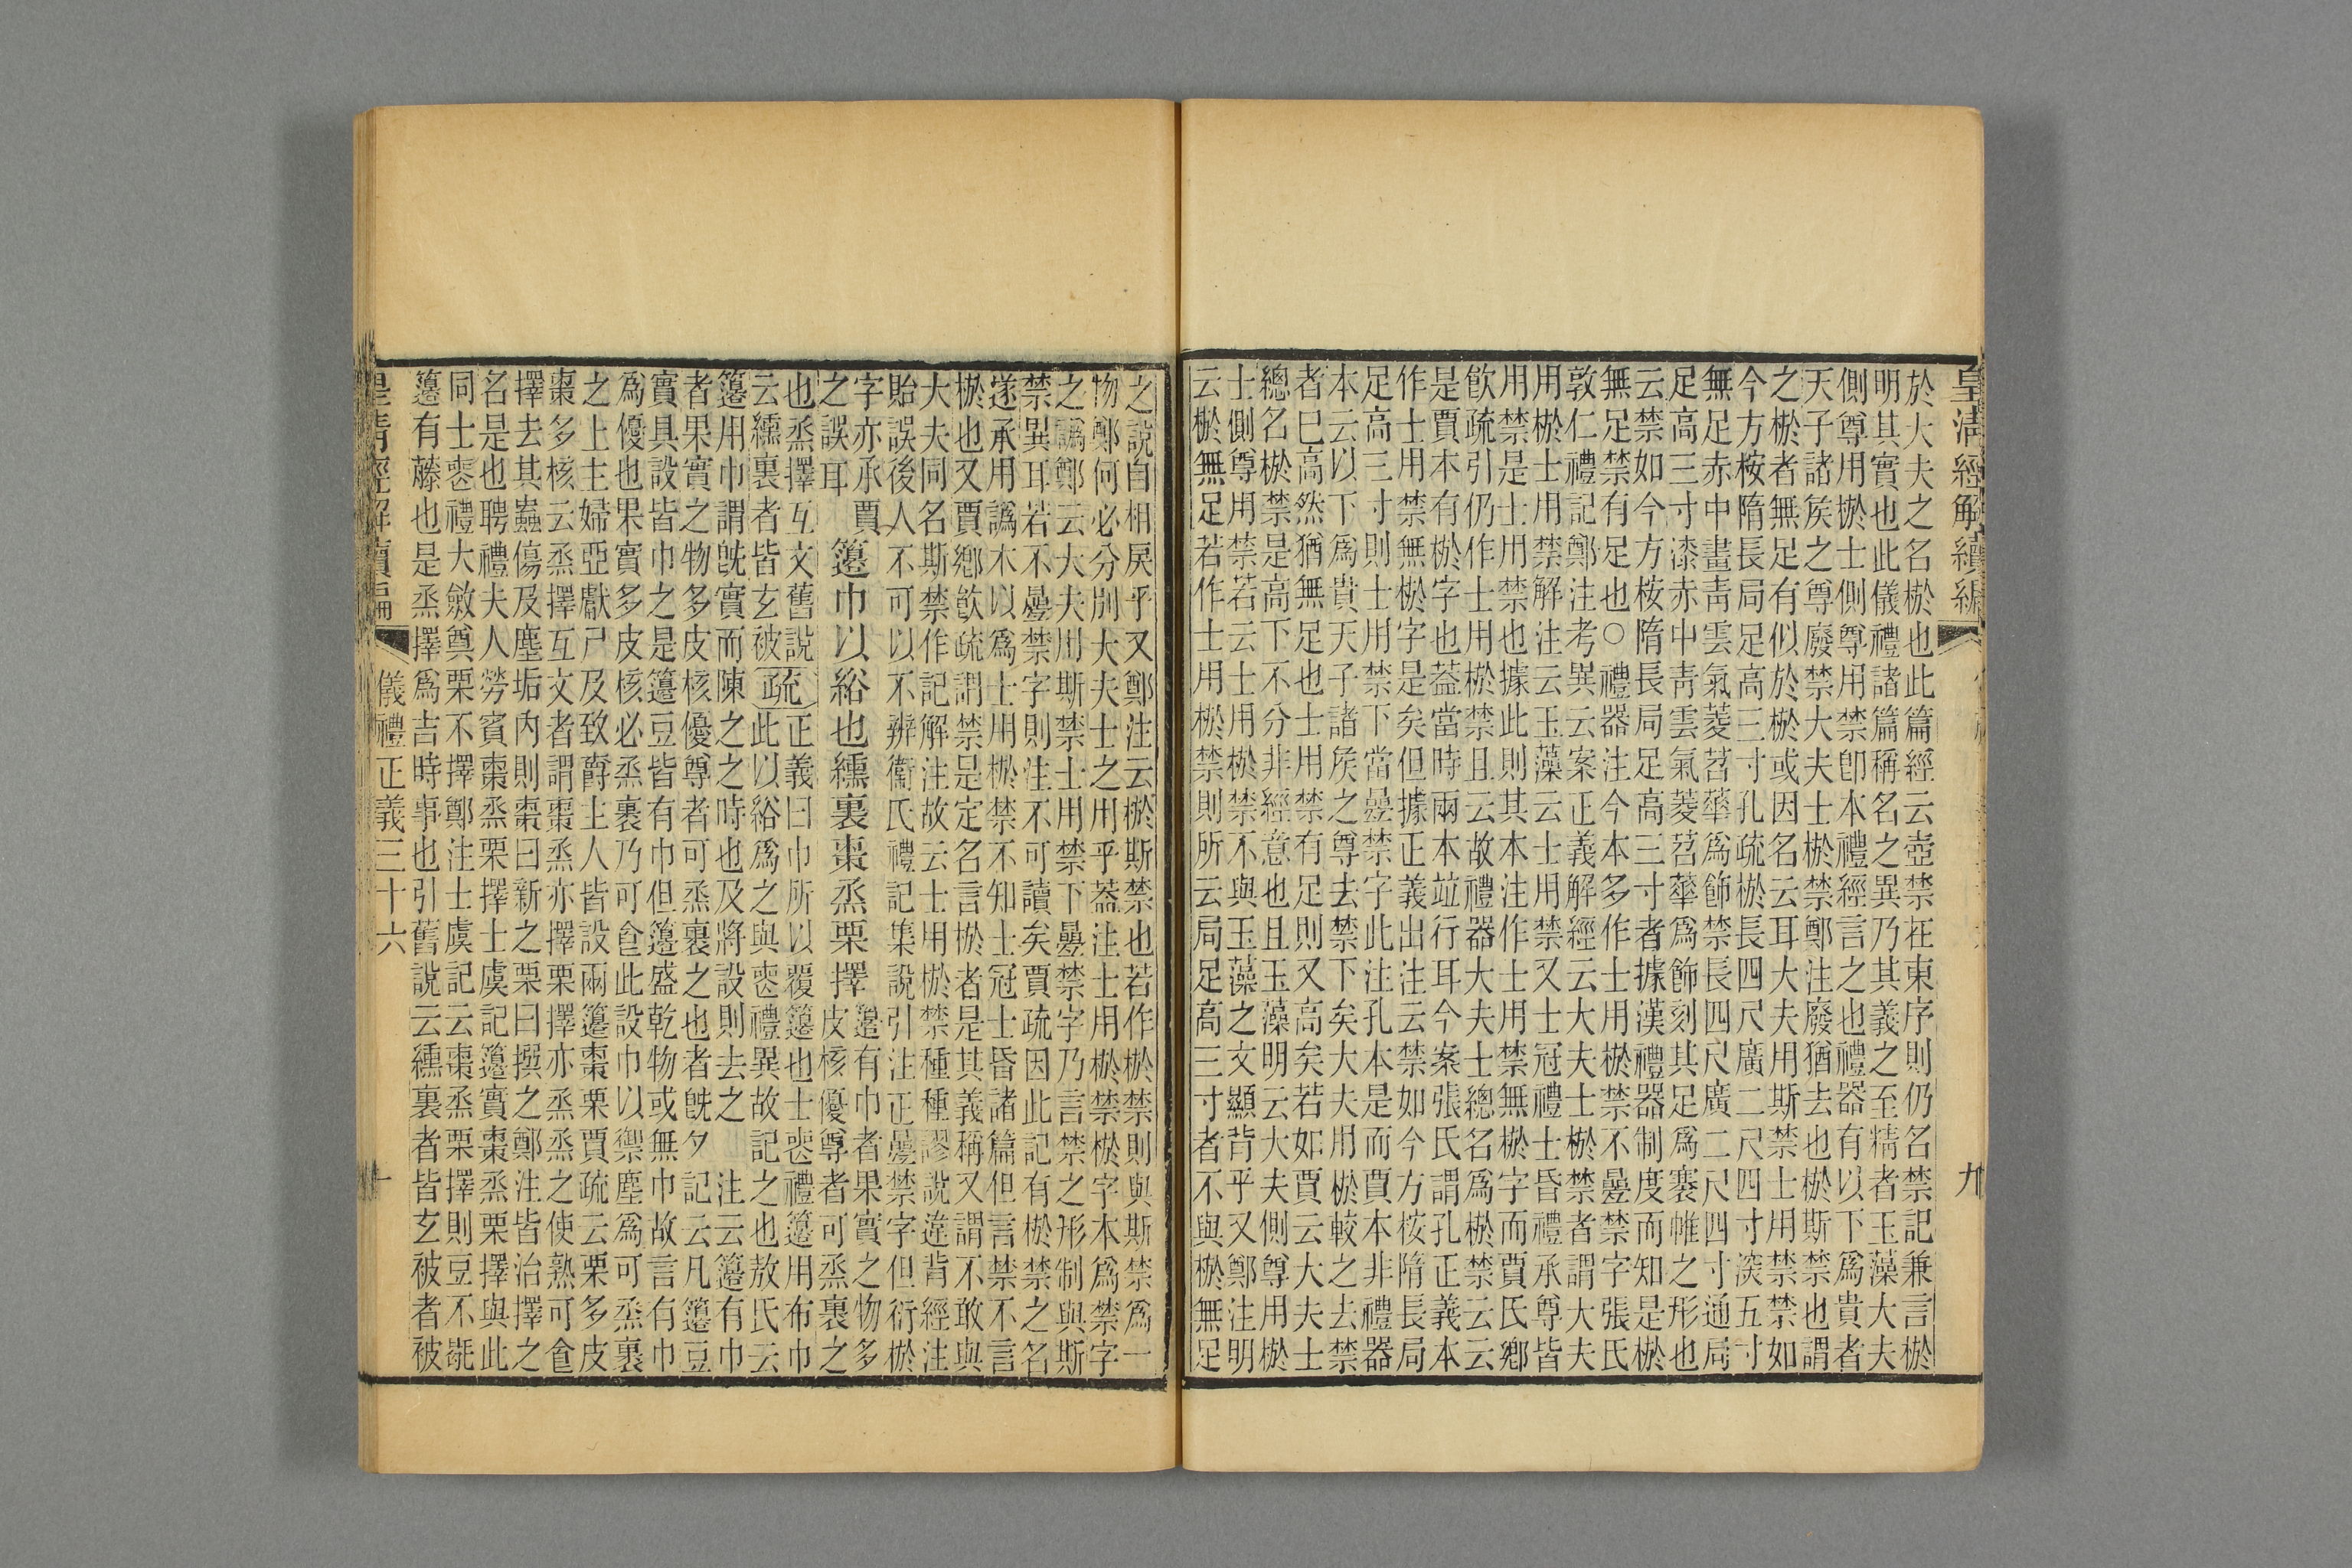 皇清經解續編 九
於大夫之名棜也此篇經云壺禁在東序則仍名禁記兼言棜
明其實也此儀禮諸篇稱名之異乃其義之至精者玉藻大夫
側尊用棜士側尊用禁卽本禮經言之也禮器有以下爲貴者
天子諸矦之尊廢禁大夫士棜禁鄭注廢猶去也棜斯禁也謂
之棜者無足有似於棜或因名云耳大夫用斯禁士用禁禁如
今方桉隋長局足高三寸孔疏棜長四尺廣二尺四寸深五寸
無足赤中畫靑雲氣菱苕華爲飾禁長四尺廣二尺四寸通局
足高三寸漆赤中靑雲氣菱苕華爲飾刻其足爲褰帷之形也
云禁如今方桉隋長局足高三寸者據漢禮器制度而知是棜
無足禁有足也○禮器注今本多作士用棜禁不疊禁字張氏
敦仁禮記鄭注考異云案正義解經云大夫士棜禁者謂大夫
用棜士用禁解注云玉藻云士用禁又士冠禮士昏禮承尊皆
用禁是士用禁也據此則其本注作士用禁無棜字而賈氏鄉
飮疏引仍作士用棜禁且云故禮器大夫士總名爲棜禁云云
是賈本有棜字也葢當時兩本竝行耳今案張氏謂孔正義本
作士用禁無棜字是矣但據正義出注云禁如今方桉隋長局
足高三寸則士用禁下當疊禁字此注孔本是而賈本非禮器
本云以下爲貴天子諸矦之尊去禁下矣大夫用棜較之去禁
者巳高然猶無足也士用禁有足則又高矣若如賈云大夫士
總名棜禁是高下不分非經意也且玉藻明云大夫側尊用棜
士側尊用禁若云士用棜禁不與玉藻之文顯背乎又鄭注明
云棜無足若作士用棜禁則所云局足高三寸者不與棜無足
之說自相戾乎又鄭注云棜斯禁也若作棜禁則與斯禁爲一
物鄭何必分別大夫士之用乎葢注士用棜禁棜字本爲禁字
之譌鄭云大夫用斯禁士用禁下疊禁字乃言禁之形制與斯
禁異耳若不疊禁字則注不可讀矣賈疏因此記有棜禁之名
遂承用譌本以爲士用棜禁不知士冠士昏諸篇但言禁不言
棜也又賈鄉飮疏謂禁是定名言棜者是其義稱又謂不敢與
大夫同名斯禁作記解注故云士用棜禁種種謬說違背經注
貽誤後人不可以不辨衞氏禮記集說引注正疊禁字但衍棜
字亦承賈
之誤耳
籩巾以綌也纁裏棗烝栗擇
籩有巾者果實之物多
皮核優尊者可烝裹之
也烝擇互文舊說
云纁裏者皆玄被
疏
正義曰巾所以覆籩也士喪禮籩用布巾
此以綌爲之與喪禮異故記之也敖氏云
籩用巾謂旣實而陳之之時也及將設則去之 注云籩有巾
者果實之物多皮核優尊者可烝裹之也者旣夕記云凡籩豆
實具設皆巾之是籩豆皆有巾但籩盛乾物或無巾故言有巾
爲優也果實多皮核必烝裹乃可食此設巾以禦塵爲可烝裹
之上主婦亞獻尸及致爵主人皆設兩籩棗栗賈疏云栗多皮
棗多核云烝擇互文者謂棗烝亦擇栗擇亦烝烝之使熟可食
擇去其蟲傷及塵垢內則棗曰新之栗曰撰之鄭注皆治擇之
名是也聘禮夫人勞賓棗烝栗擇士虞記籩實棗烝栗擇與此
同士喪禮大斂奠栗不擇鄭注士虞記云棗烝栗擇則豆不毼
籩有藤也是烝擇爲吉時事也引舊說云纁裏者皆玄被者被
皇清經解續編 儀禮正義三十六 十